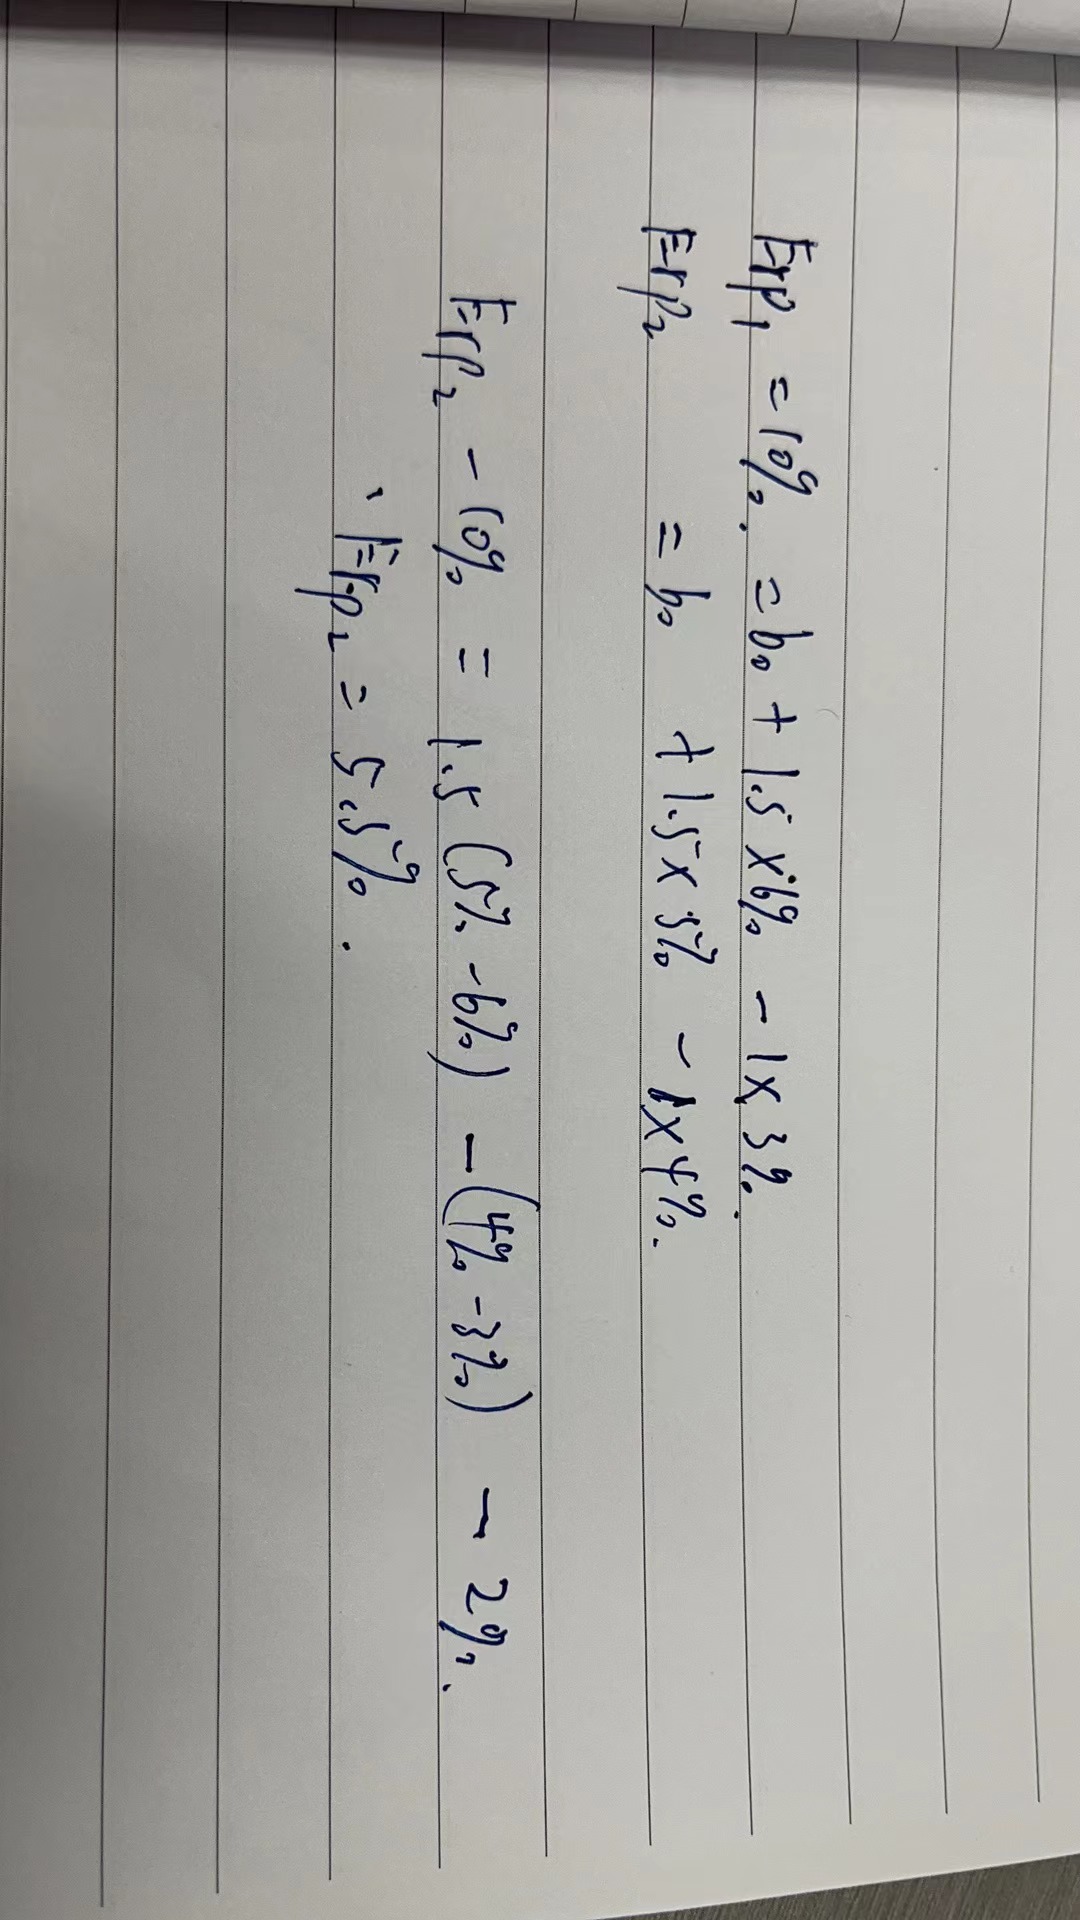 Erp₁ = 10% = b₀ + 1.5 × 6% − 1 × 3%.
Erp₂ = b₀ + 1.5 × 5% − 1 × 4%.
Erp₂ − 10% = 1.5 (5% − 6%) − (4% − 3%) − 2%.
Erp₂ = 5.5%.